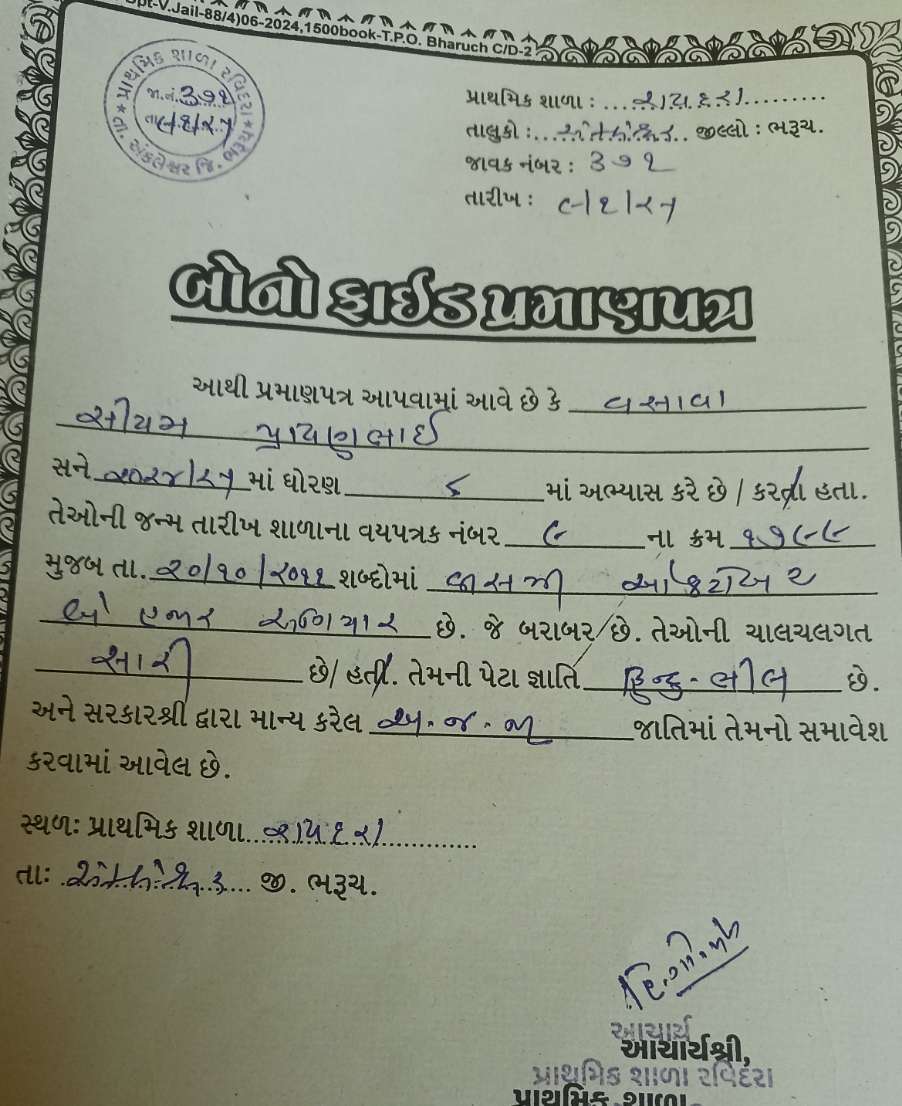 pt-V.Jail-88/4)06-2024,1500book-T.P.O. Bharuch C/D-2
પ્રાથમિક શાળા રવિદરા
જા.નં. ૩૭૧
તા.
તા. અંકલેશ્વર જિ. ભરૂચ
પ્રાથમિક શાળા :
તાલુકો : અંકલેશ્વર જીલ્લો : ભરૂચ.
જાવક નંબર : ૩૭૧
તારીખ : ૯/૬/૨૫
બોનોફાઈડ પ્રમાણપત્ર
આથી પ્રમાણપત્ર આપવામાં આવે છે કે વસાવા
સીયમ
સને ૨૦૨૪/૨૫ માં ધોરણ ૮ માં અભ્યાસ કરે છે / કરતા હતા.
તેઓની જન્મ તારીખ શાળાના વયપત્રક નંબર ૯ ના ક્રમ ૧૭૯૯
મુજબ તા. ૨૦/૧૦/૨૦૧૧ શબ્દોમાં વીસમી ઓક્ટોબર
બે હજાર અગિયાર છે. જે બરાબર છે. તેઓની ચાલચલગત
સારી છે/ હતી. તેમની પેટા જ્ઞાતિ હિન્દુ - ભીલ છે.
અને સરકારશ્રી દ્વારા માન્ય કરેલ અ.જ.જા જાતિમાં તેમનો સમાવેશ
કરવામાં આવેલ છે.
સ્થળ: પ્રાથમિક શાળા
તા: અંકલેશ્વર જી. ભરૂચ.
આચાર્ય
આચાર્યશ્રી,
પ્રાથમિક શાળા રવિદરા
પ્રાથમિક શાળા